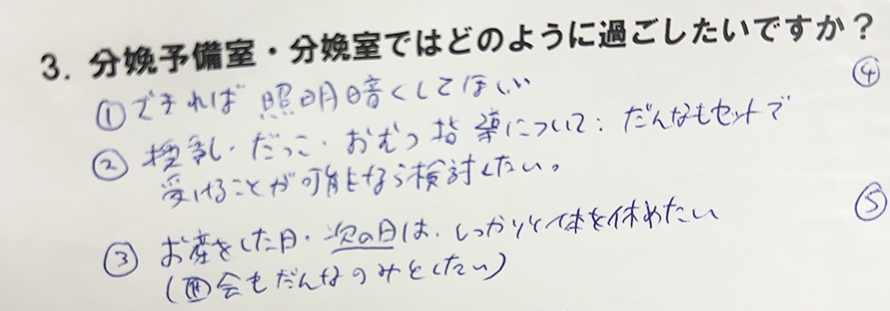 3. 分娩予備室・分娩室ではどのように過ごしたいですか？
① できれば 照明暗くしてほしい
④
② 授乳・だっこ・おむつ 指導について：だんなもセットで
受けることが可能なら検討したい。
③ お産をした日・次の日は、しっかりと体を休めたい
⑤
(面会もだんなのみとしたい)